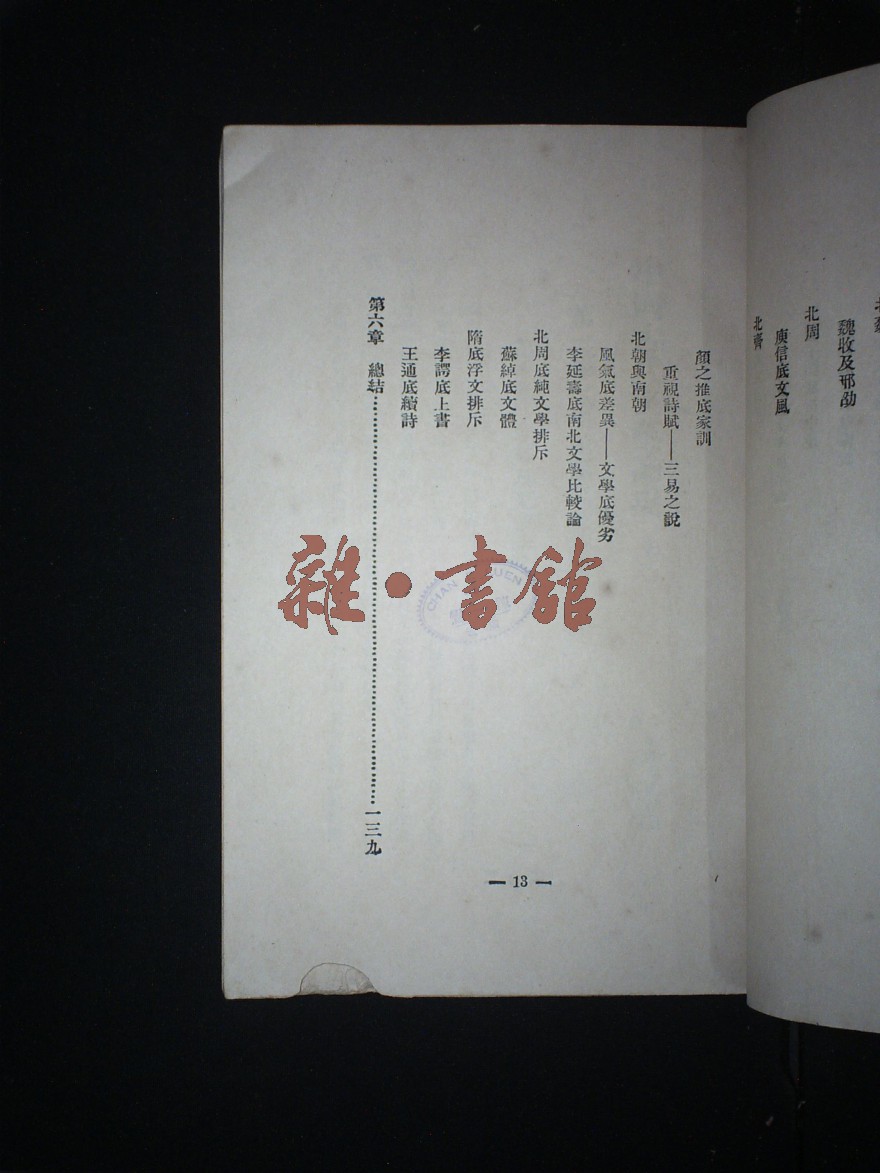 魏收及邢劭
北周
庾信底文風
北齊
顏之推底家訓
重視詩賦——三易之說
北朝與南朝
風氣底差異——文學底優劣
李延壽底南北文學比較論
北周底純文學排斥
蘇綽底文體
隋底浮文排斥
李諤底上書
王通底續詩
第六章 總結…………一三九
— 13 —
雜·書館